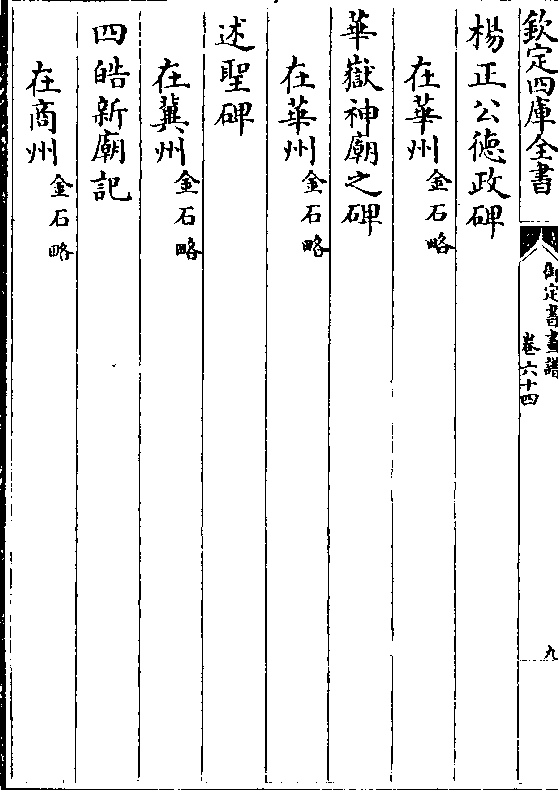 欽定四庫全書
御定書畫譜
卷六十四
九
楊正公德政碑
在華州金石略
華嶽神廟之碑
在華州金石略
述聖碑
在冀州金石略
四皓新廟記
在商州金石略